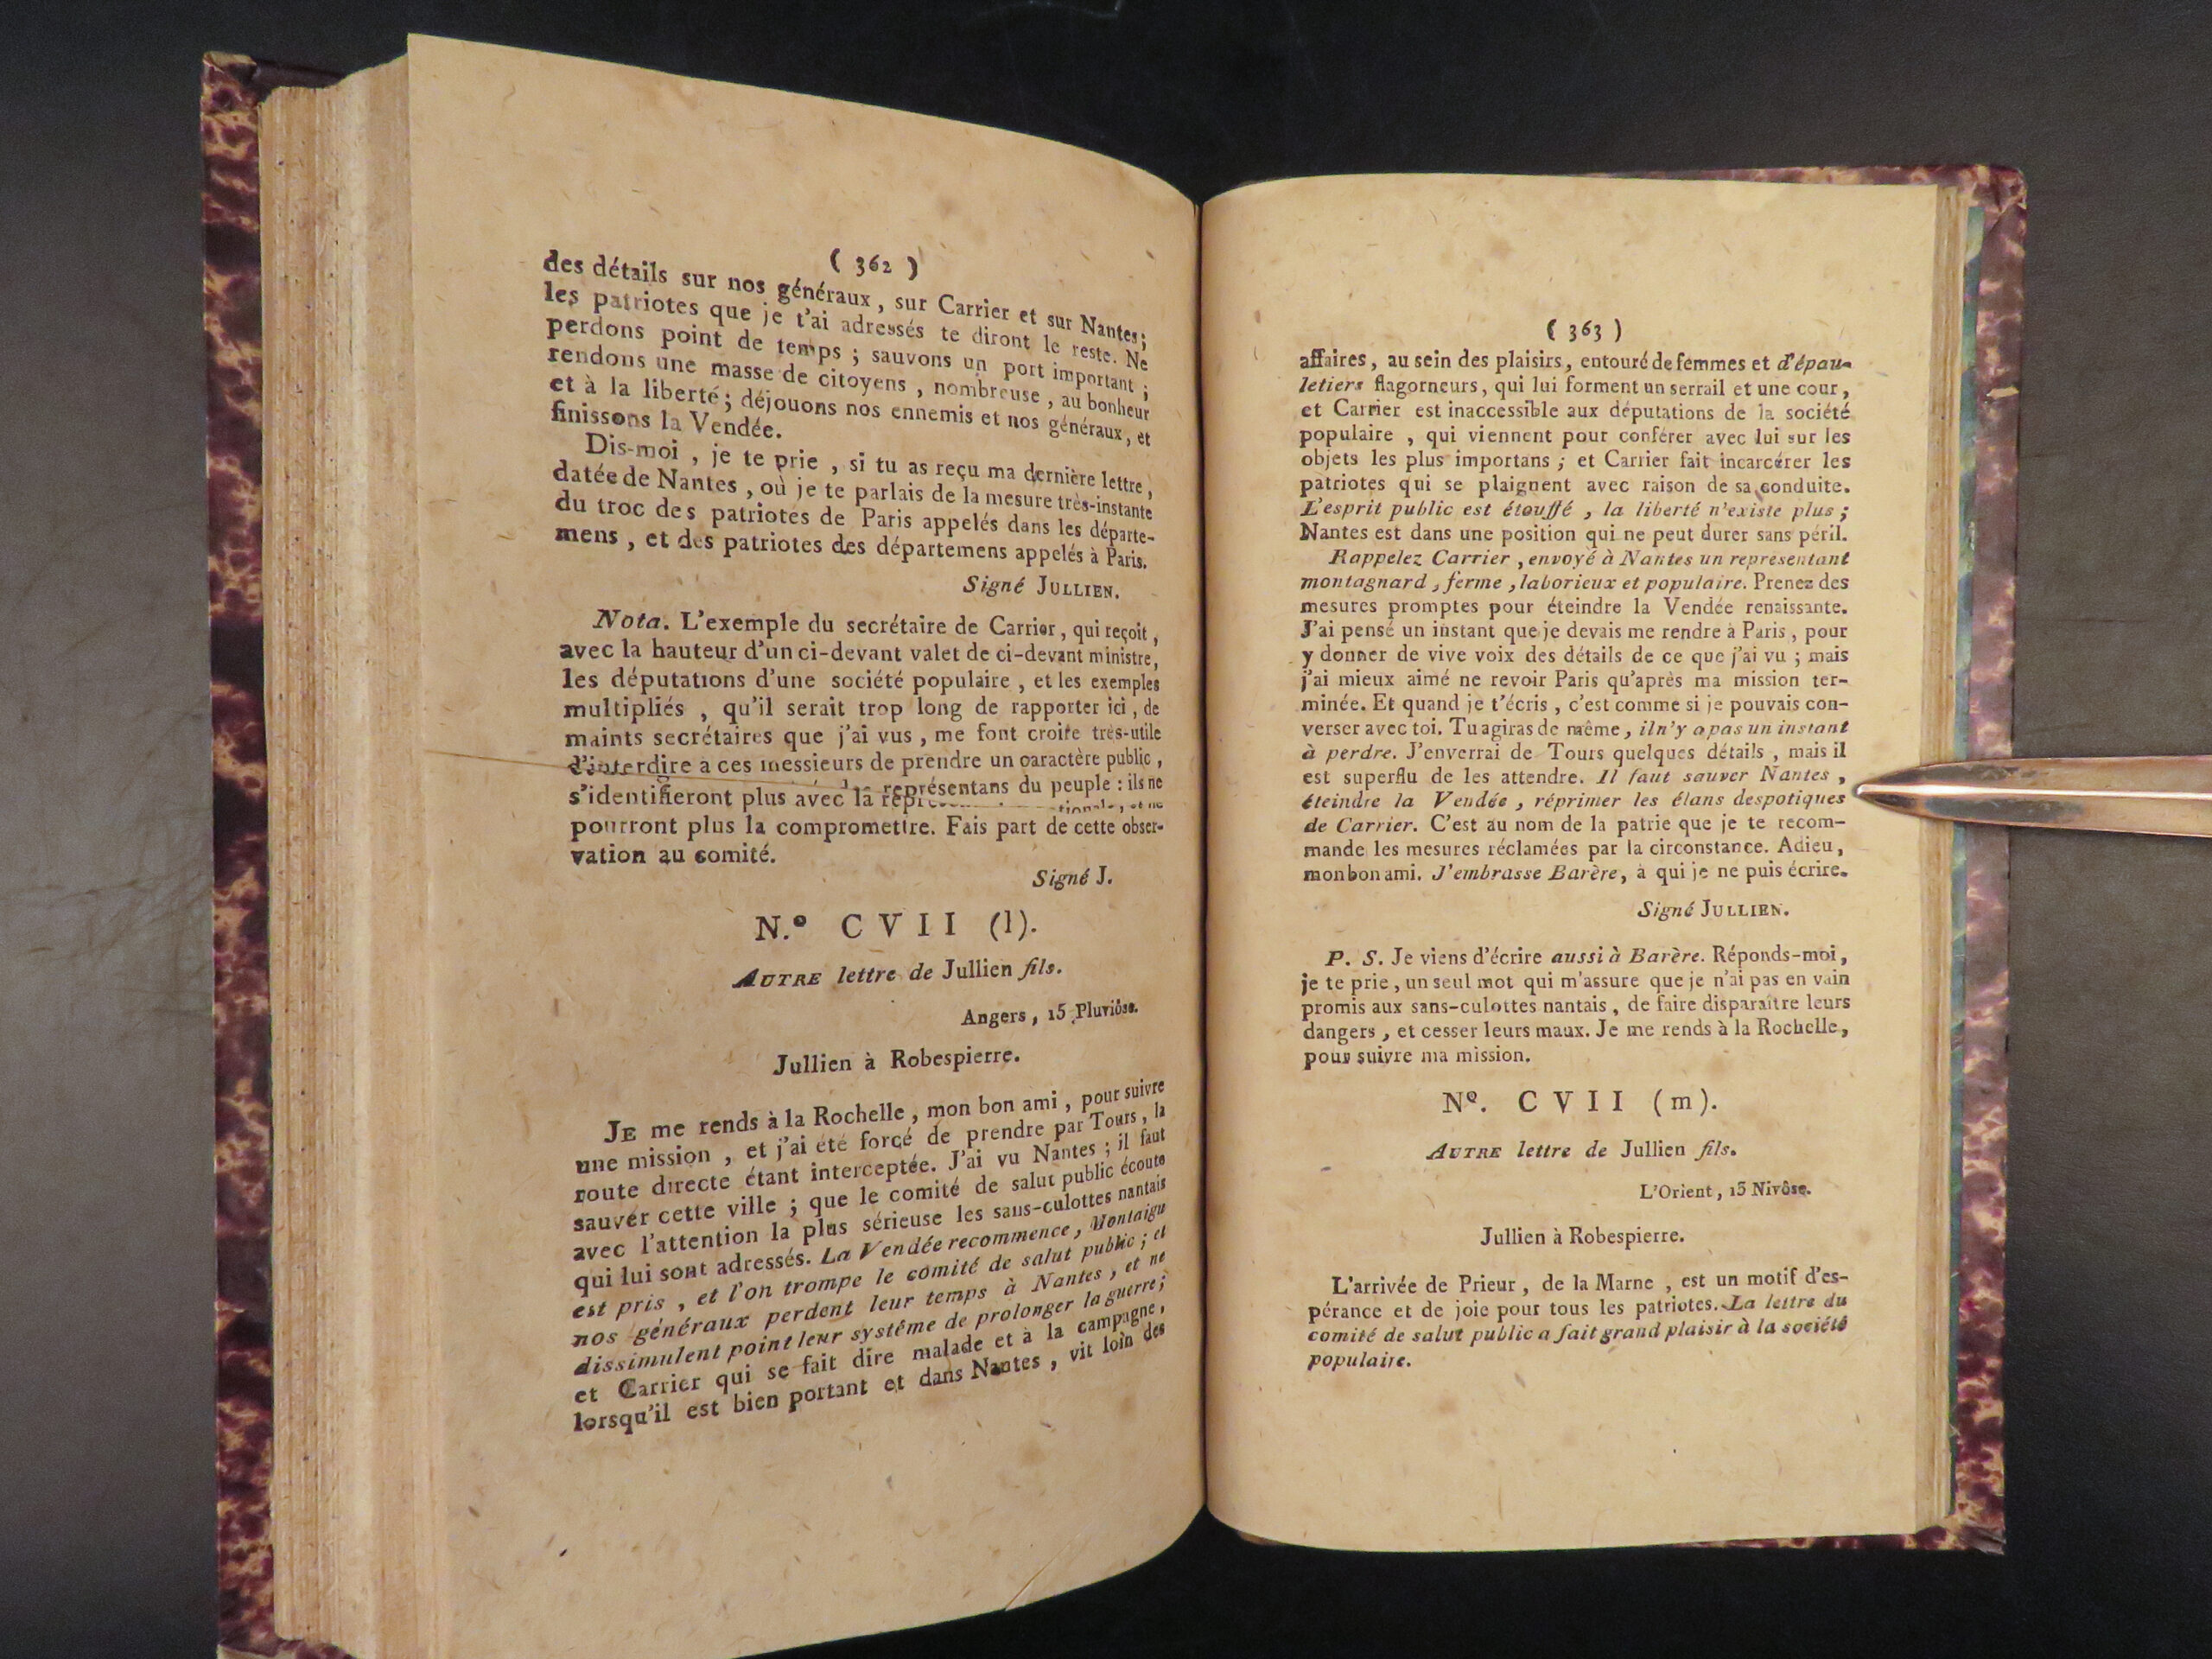 ( 362 )
des détails sur nos généraux, sur Carrier et sur Nantes;
les patriotes que je t'ai adressés te diront le reste. Ne
perdons point de temps ; sauvons un port important ;
rendons une masse de citoyens , nombreuse , au bonheur
et à la liberté ; déjouons nos ennemis et nos généraux, et
finissons la Vendée.
Dis-moi , je te prie , si tu as reçu ma dernière lettre,
datée de Nantes , où je te parlais de la mesure très-instante
du troc des patriotes de Paris appelés dans les départe-
mens , et des patriotes des départemens appelés à Paris.
Signé JULLIEN.
Nota. L'exemple du secrétaire de Carrier, qui reçoit,
avec la hauteur d'un ci-devant valet de ci-devant ministre,
les députations d'une société populaire , et les exemples
multipliés , qu'il serait trop long de rapporter ici , de
maints secrétaires que j'ai vus , me font croire très-utile
d'interdire à ces messieurs de prendre un caractère public ,
représentans du peuple : ils ne
s'identifieront plus avec la
pourront plus la compromettre. Fais part de cette obser-
vation au comité.
Signé J.
N.º CVII (l).
AUTRE lettre de Jullien fils.
Angers , 15 Pluviôse.
Jullien à Robespierre.
JE me rends à la Rochelle , mon bon ami , pour suivre
une mission , et j'ai été forcé de prendre par Tours , la
route directe étant interceptée. J'ai vu Nantes ; il faut
sauver cette ville ; que le comité de salut public écoute
avec l'attention la plus sérieuse les sans-culottes nantais
qui lui sont adressés. La Vendée recommence, Montaigu
est pris , et l'on trompe le comité de salut public ; et
nos généraux perdent leur temps à Nantes , et ne
dissimulent point leur systême de prolonger la guerre;
et Carrier qui se fait dire malade et à la campagne,
lorsqu'il est bien portant et dans Nantes , vit loin des
( 363 )
affaires, au sein des plaisirs, entouré de femmes et d'épau-
letiers flagorneurs, qui lui forment un serrail et une cour,
et Carrier est inaccessible aux députations de la société
populaire , qui viennent pour conférer avec lui sur les
objets les plus importans ; et Carrier fait incarcérer les
patriotes qui se plaignent avec raison de sa conduite.
L'esprit public est étouffé , la liberté n'existe plus ;
Nantes est dans une position qui ne peut durer sans péril.
Rappelez Carrier , envoyé à Nantes un représentant
montagnard , ferme , laborieux et populaire. Prenez des
mesures promptes pour éteindre la Vendée renaissante.
J'ai pensé un instant que je devais me rendre à Paris , pour
y donner de vive voix des détails de ce que j'ai vu ; mais
j'ai mieux aimé ne revoir Paris qu'après ma mission ter-
minée. Et quand je t'écris , c'est comme si je pouvais con-
verser avec toi. Tu agiras de même , il n'y a pas un instant
à perdre. J'enverrai de Tours quelques détails , mais il
est superflu de les attendre. Il faut sauver Nantes ,
éteindre la Vendée , réprimer les élans despotiques
de Carrier. C'est au nom de la patrie que je te recom-
mande les mesures réclamées par la circonstance. Adieu,
mon bon ami. J'embrasse Barère, à qui je ne puis écrire.
Signé JULLIEN.
P. S. Je viens d'écrire aussi à Barère. Réponds-moi,
je te prie , un seul mot qui m'assure que je n'ai pas en vain
promis aux sans-culottes nantais , de faire disparaître leurs
dangers , et cesser leurs maux. Je me rends à la Rochelle,
pour suivre ma mission.
Nº. CVII (m).
AUTRE lettre de Jullien fils.
L'Orient , 13 Nivôse.
Jullien à Robespierre.
L'arrivée de Prieur , de la Marne , est un motif d'es-
pérance et de joie pour tous les patriotes. La lettre du
comité de salut public a fait grand plaisir à la société
populaire.